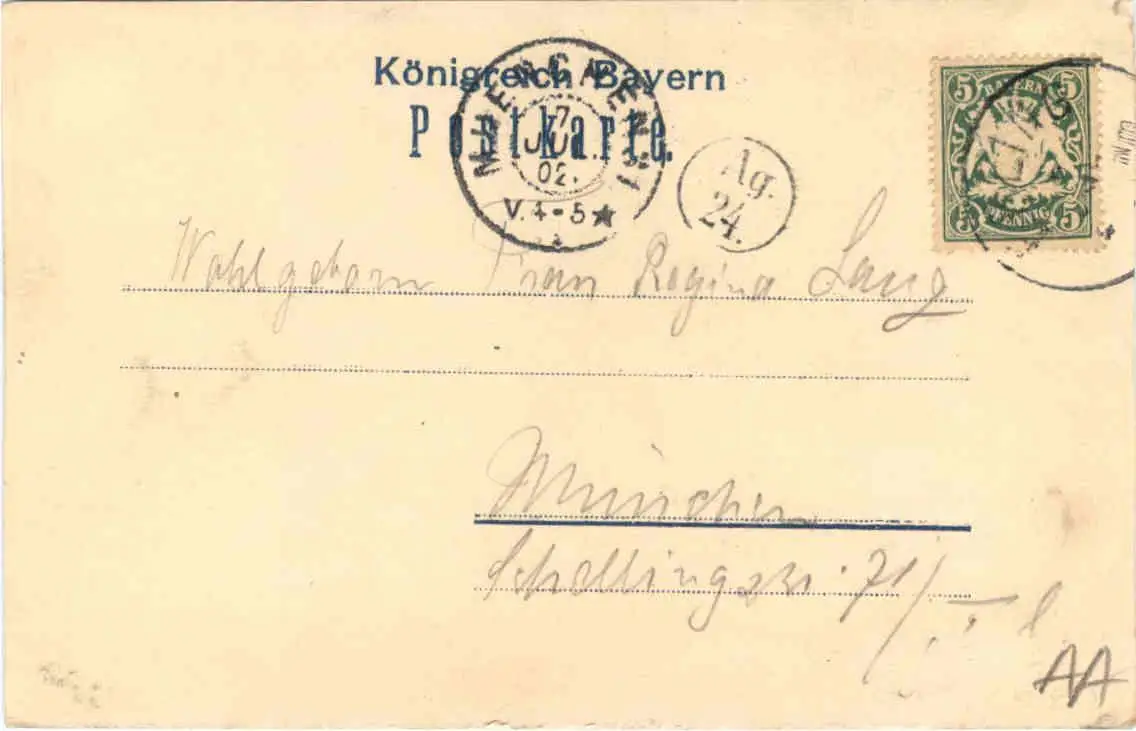 Königreich Bayern
Postkarte.
MUENCHEN 1
7
02.
V. 4-5 ★
Ag.
24.
5 BAYERN 5
5 PFENNIG 5
Wohlgeborn Frau Regina Lang
München
Schellingstr. 71/I l
AA